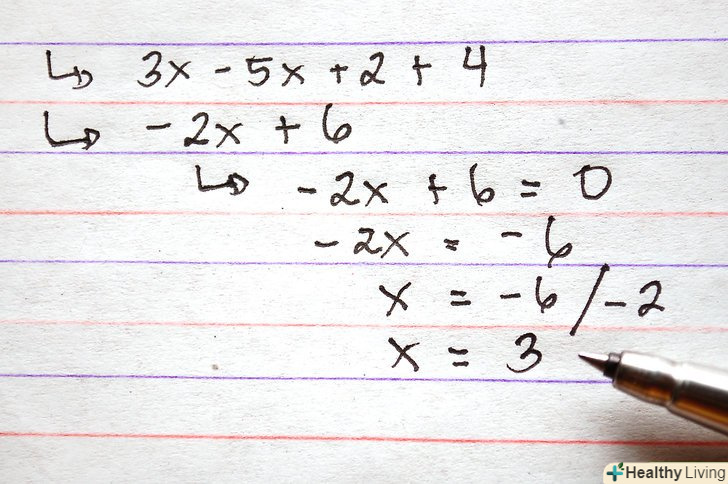 ↳ 3x - 5x + 2 + 4
↳ - 2x + 6
↳ - 2x + 6 = 0
- 2x = - 6
x = - 6 / - 2
x = 3
Healthy Living